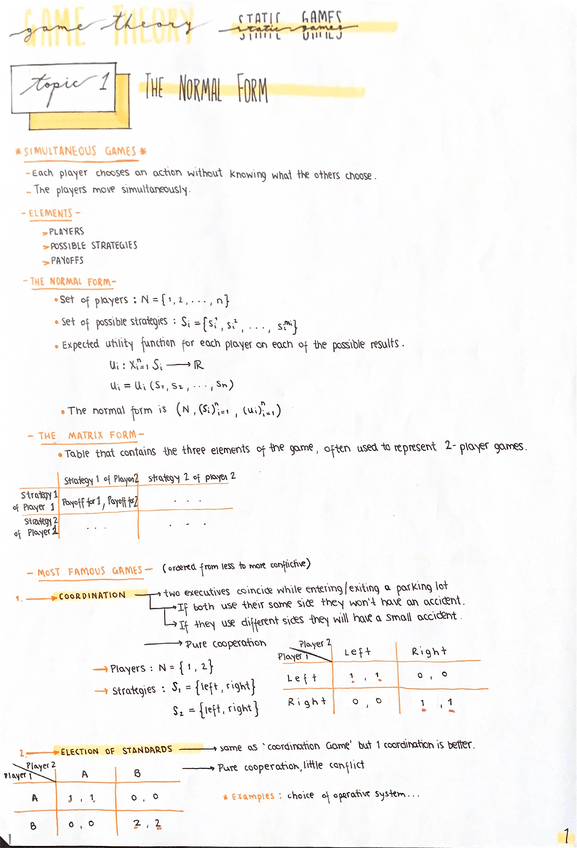 GAME THEORY
game theory
STATIC GAMES
static games
topic 1
THE NORMAL FORM
*SIMULTANEOUS GAMES*
-Each player chooses an action without knowing what the others choose.
- The players move simultaneously.
- ELEMENTS -
➢PLAYERS
➢POSSIBLE STRATEGIES
➢PAYOFFS
- THE NORMAL FORM -
• Set of players : N = {1, 2, ..., n}
• Set of possible strategies : Sᵢ = {sᵢ¹, sᵢ², ..., sᵢᵐⁱ}
• Expected utility function for each player on each of the possible results.
uᵢ : Xⁿᵢ₌₁ Sᵢ ⟶ ℝ
uᵢ = uᵢ (S₁, S₂, ..., Sₙ)
• The normal form is (N, (Sᵢ)ⁿᵢ₌₁, (uᵢ)ⁿᵢ₌₁)
- THE MATRIX FORM -
• Table that contains the three elements of the game, often used to represent 2-player games.
Strategy 1 of Player 2 strategy 2 of player 2
Strategy 1 of Player 1 Payoff for 1, Payoff for 2 ...
Strategy 2 of Player 1 ... ...
- MOST FAMOUS GAMES - (ordered from less to more conflictive)
1. → COORDINATION → two executives coincide while entering/exiting a parking lot
→ If both use their same side they won't have an accident.
→ If they use different sides they will have a small accident.
→ Pure cooperation
→ Players : N = {1, 2}
→ Strategies : S₁ = {left, right}
S₂ = {left, right}
Player 2
Player 1 Left Right
Left 1, 1 0, 0
Right 0, 0 1, 1
2. → ELECTION OF STANDARDS → same as 'coordination Game' but 1 coordination is better.
→ Pure cooperation, little conflict
* Examples : choice of operative system...
Player 2
Player 1 A B
A 1, 1 0, 0
B 0, 0 2, 2
1